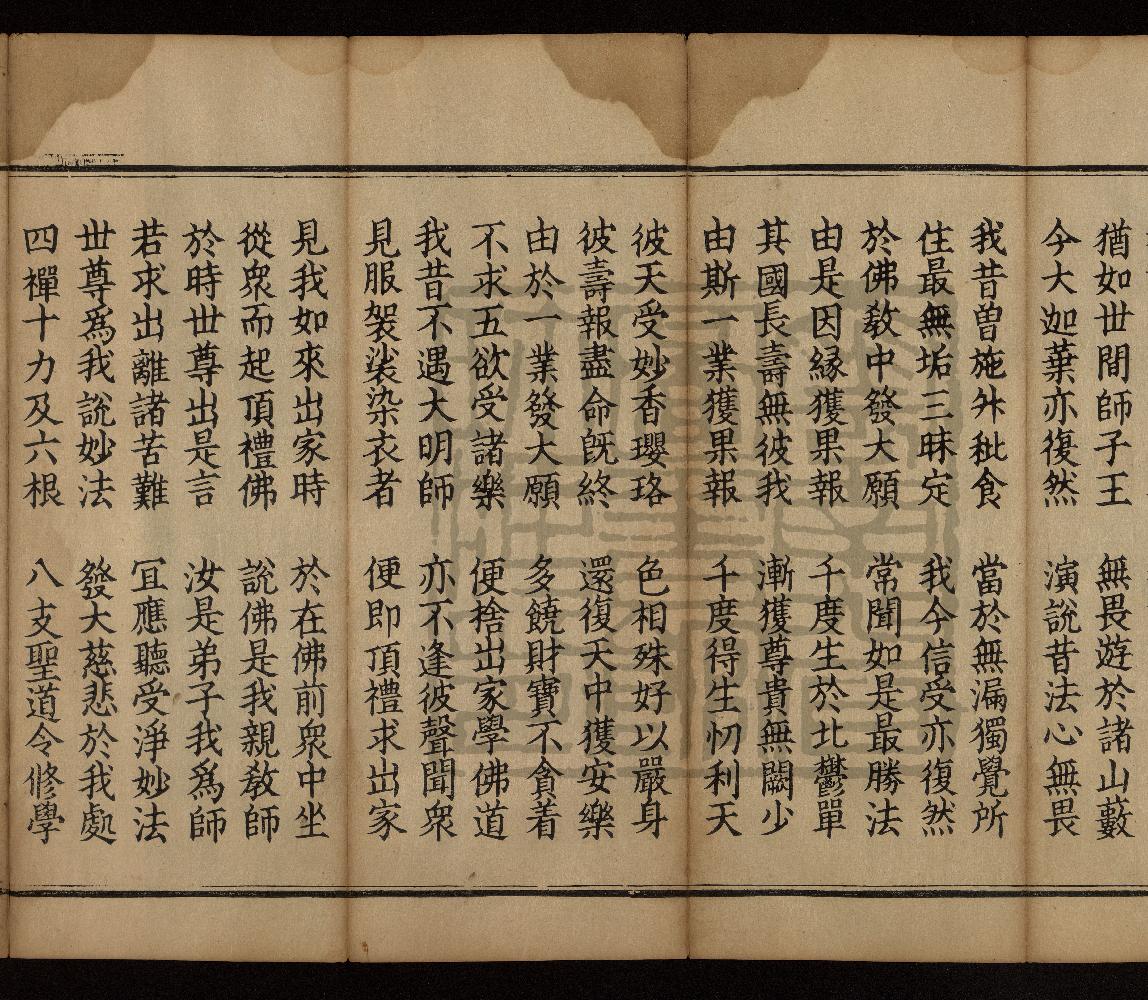 猶如世間師子王　無畏遊於諸山藪
今大迦葉亦復然　演說昔法心無畏
我昔曾施外秕食　當於無漏獨覺所
住最無垢三昧定　我今信受亦復然
於佛教中發大願　常聞如是最勝法
由是因緣獲果報　千度生於北鬱單
其國長壽無彼我　漸獲尊貴無闕少
由斯一業獲果報　千度得生忉利天
彼天受妙香瓔珞　色相殊好以嚴身
彼壽報盡命旣終　還復天中獲安樂
由於一業發大願　多饒財寶不貪着
不求五欲受諸樂　便捨出家學佛道
我昔不遇大明師　亦不逢彼聲聞衆
見服袈裟染衣者　便即頂禮求出家
見我如來出家時　於在佛前衆中坐
從衆而起頂禮佛　說佛是我親教師
於時世尊出是言　汝是弟子我爲師
若求出離諸苦難　冝應聽受淨妙法
世尊爲我說妙法　發大慈悲於我處
四禪十力及六根　八支聖道令修學